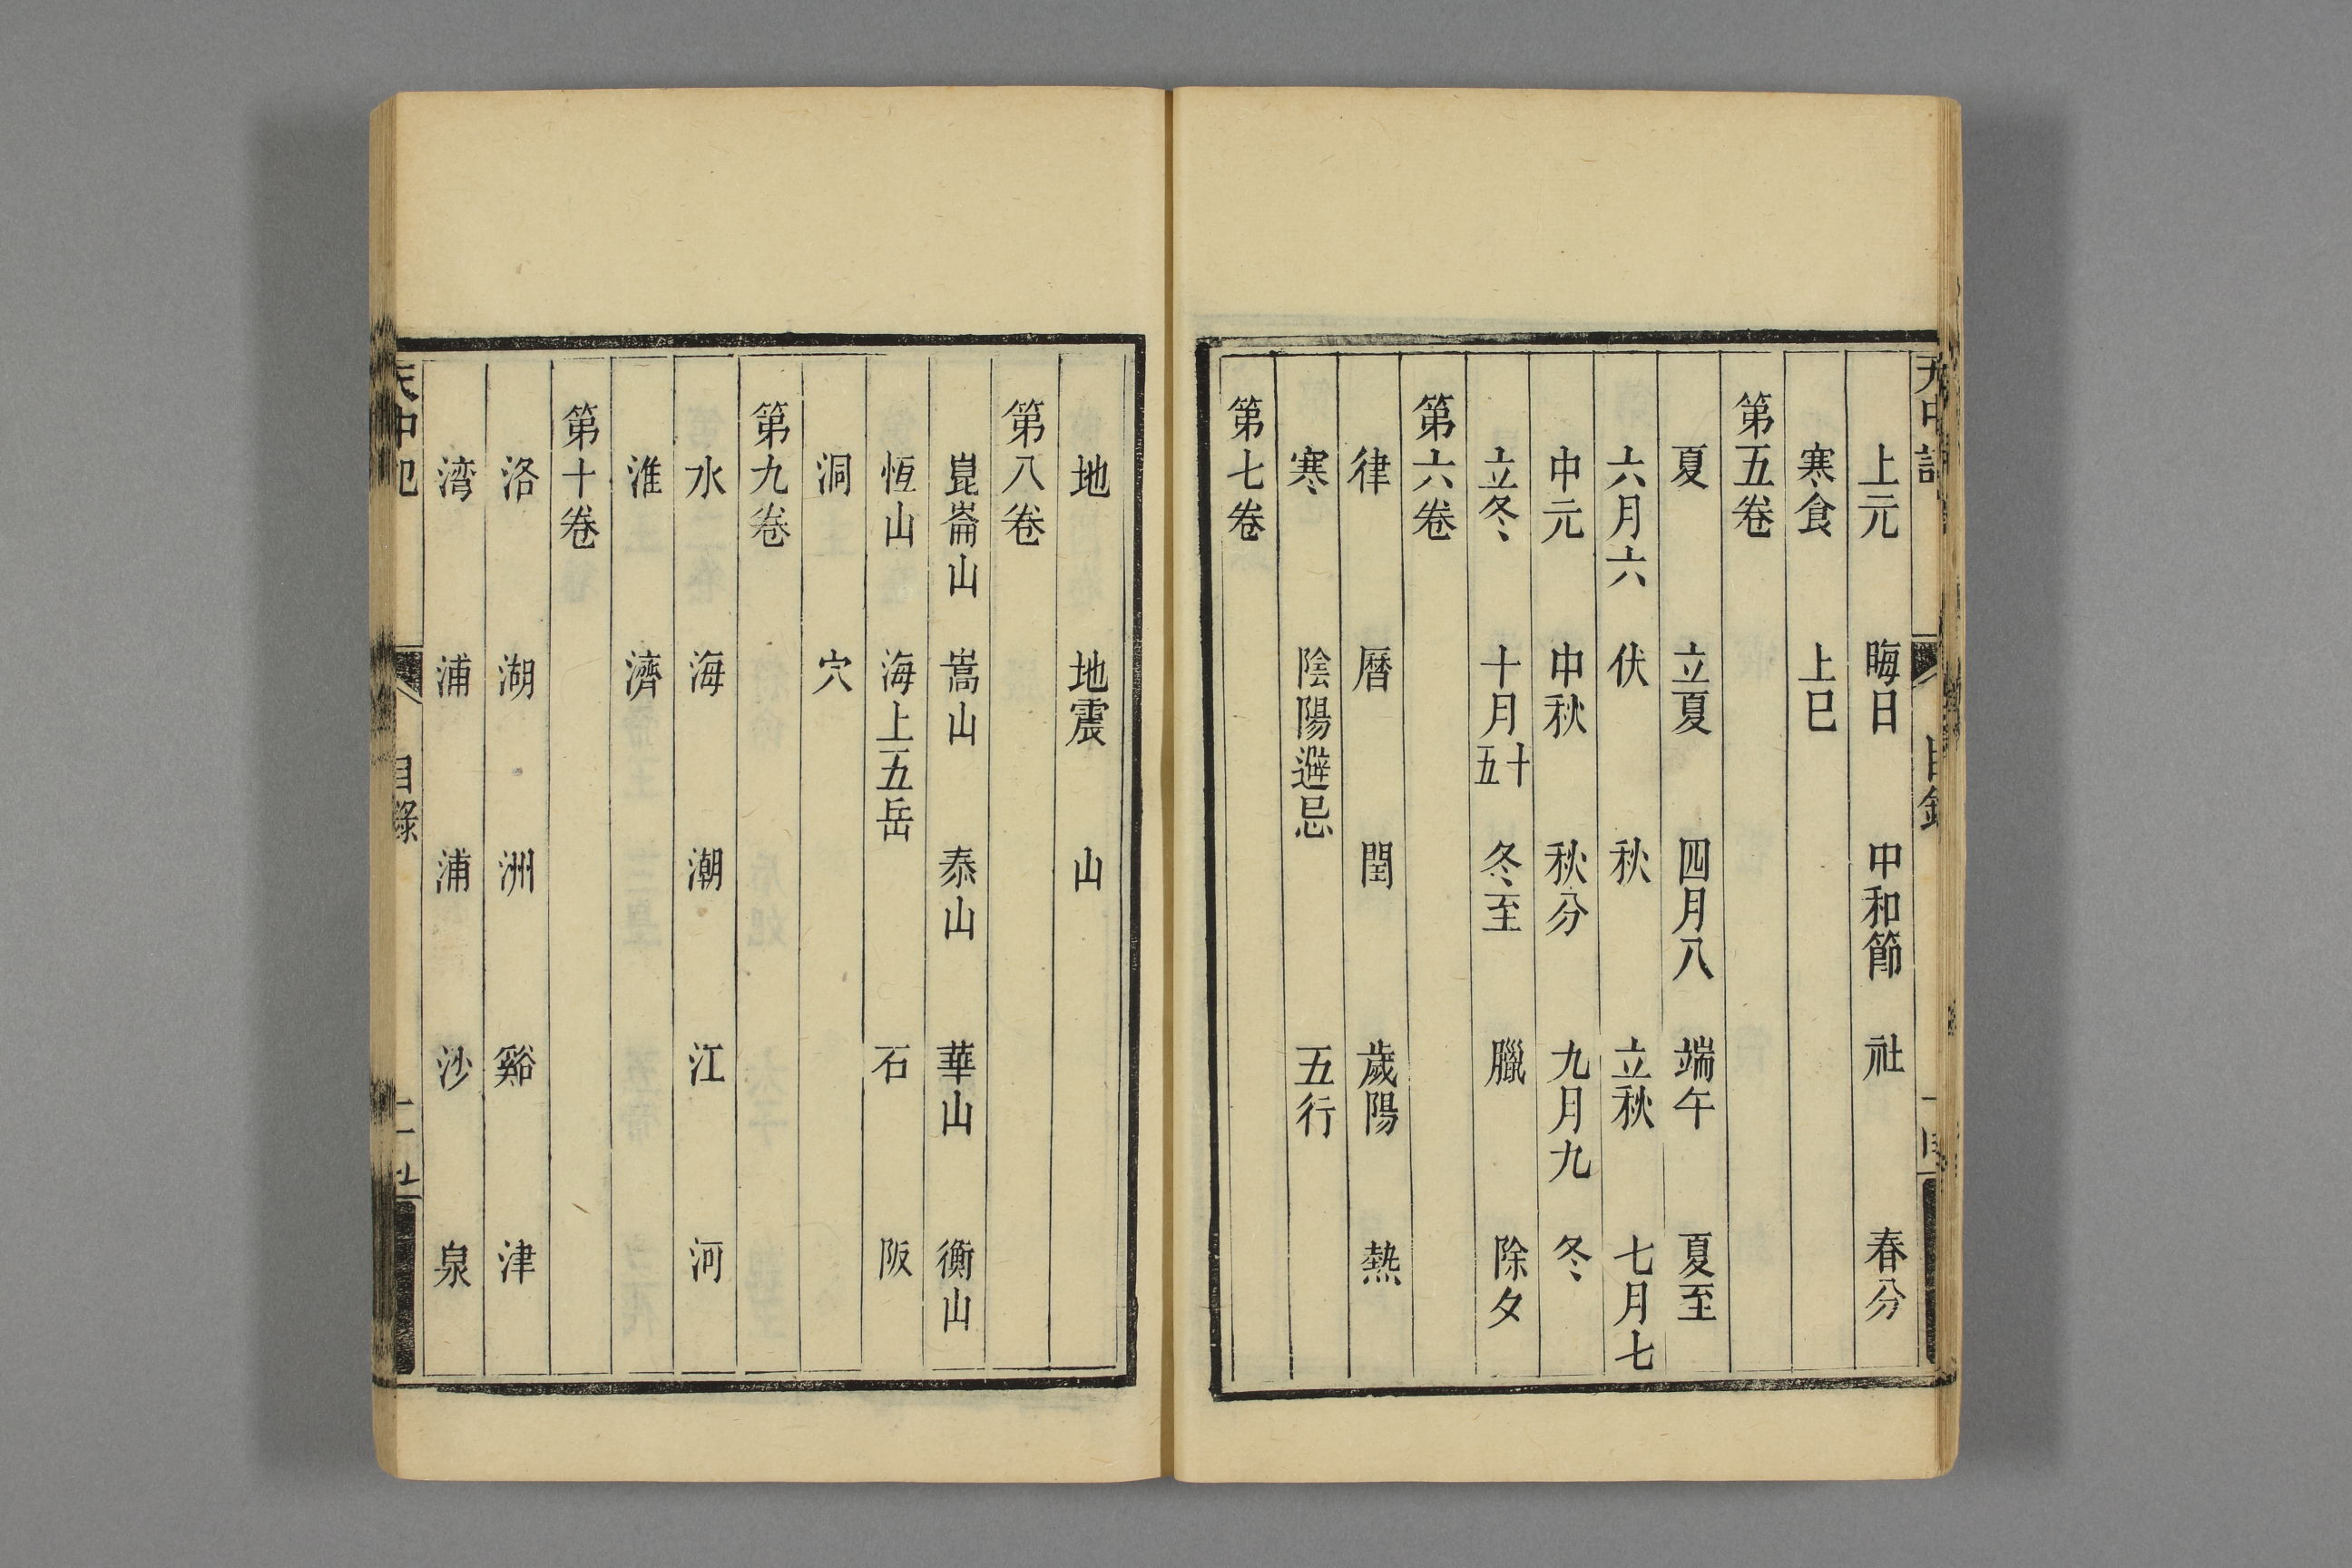 上元　晦日　中和節　社　春分
寒食　上巳
第五卷
夏　立夏　四月八　端午　夏至
六月六　伏　秋　立秋　七月七
中元　中秋　秋分　九月九　冬
立冬　十月十五　冬至　臘　除夕
第六卷
律　曆　閏　歲陽　熱
寒　陰陽避忌　五行
第七卷
地　地震　山
第八卷
崑崙山　嵩山　泰山　華山　衡山
恆山　海上五岳　石　阪
洞　穴
第九卷
水　海　潮　江　河
淮　濟
第十卷
洛　湖　洲　谿　津
湾　浦　浦　沙　泉
天中記　目錄　二